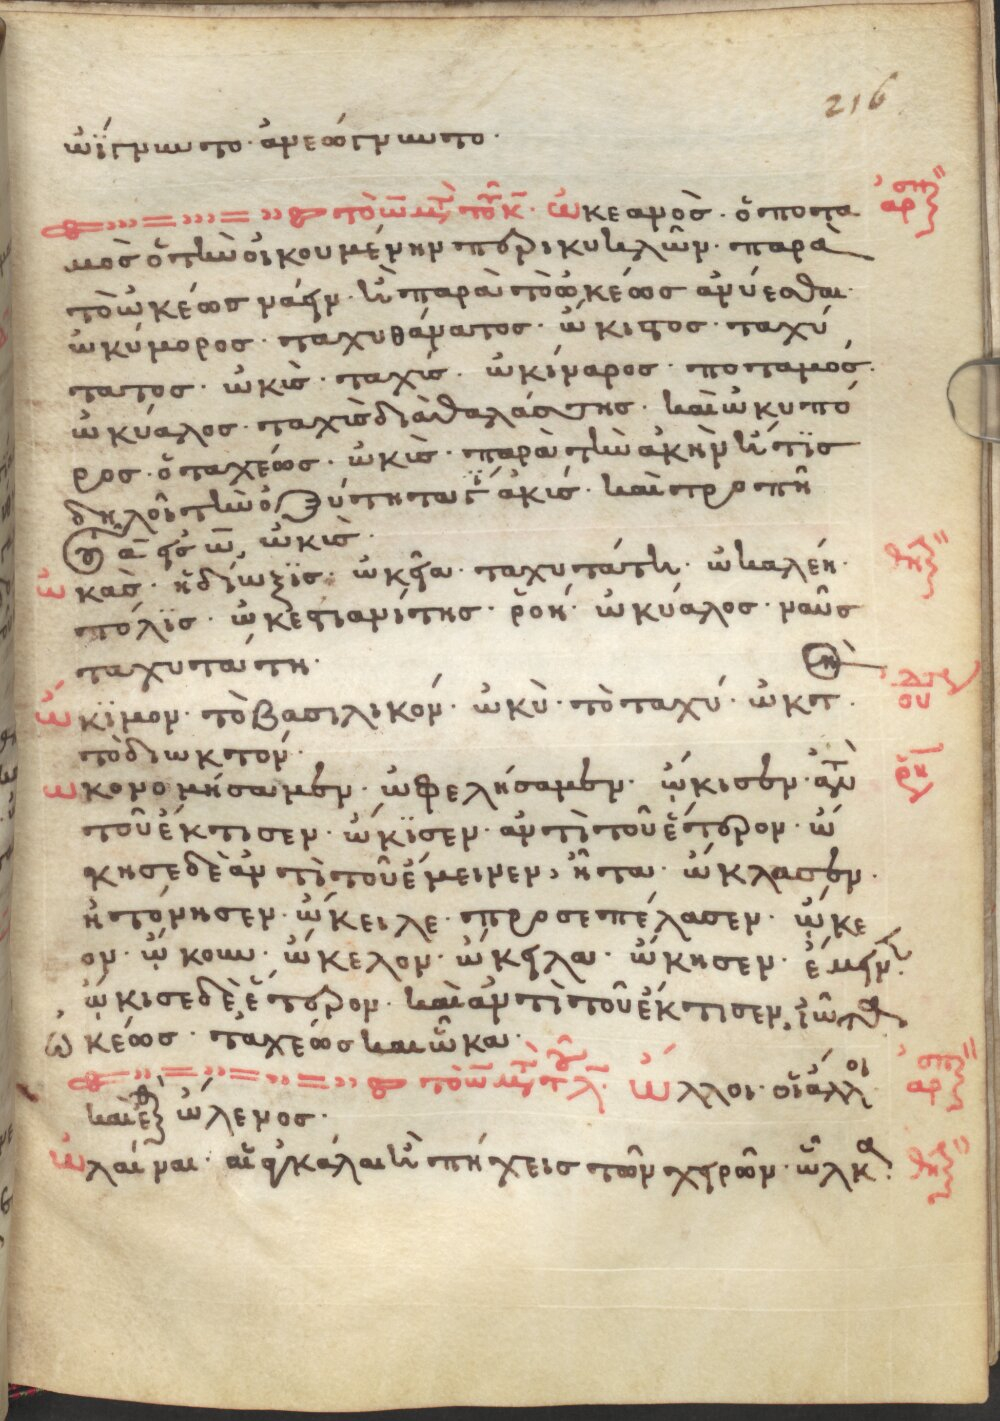 216
ὠΐγνυντο· ἀνεώγνυντο·
τὸ ω μ τ τοῦ κ· ὠκεανὸς· ὁ ποτα ἀρσ
μὸς ὁ τὴν οἰκουμένην περικυκλῶν· παρὰ
τὸ ὠκέως νάειν· ἢ παρὰ τὸ ὠκέως ἀνύεσθαι·
ὠκύμορος· ταχυθάνατος· ὤκιστος· ταχύ
τατος· ὠκὶς· ταχίς· ὠκίναρος· ποταμός·
ὠκύαλος· ταχὶς διὰ θαλάσσης· καὶ ὠκυπό
ρος· ὁ ταχέως· ὠκὶς· παρὰ τὴν ἀκὴν ἥτις
δηλοῖ τὴν ὀξύτητα γί ἀκίς· καὶ τροπῆ
τοῦ α εἰς ω, ὠκὶς·
ὠκὰς· ἡ δίωξϊς· ὠκεῖα· ταχυτάτη· ὠκαλέη· θη
πόλϊς· ὠκεστιανίτης· ῥοή· ὠκύαλος· ναῦς
ταχυτάτη·
ὤκϊμον· τὸ βασιλικόν· ὠκὺ· τὸ ταχύ· ὠκτ· ου
τὸ διωκτόν·
ὠκονομήσαμεν· ὠφελήσαμεν· ᾤκισεν· ἀντὶ ῥη
τοῦ ἔκτισεν· ὤκϊσεν· ἀντὶ τοῦ ἕτερον· ᾤ
κησε δὲ ἀντὶ τοῦ ἔμεινεν, ἦτα· ὤκλασεν·
ἠτόνησεν· ὤκειλε· προσεπέλασεν· ᾤκε
ον· ᾤκουν· ὤκελον· ὤκειλα· ᾤκησεν· ἔμειν·
ᾤκισε δὲ ἕτερον· καὶ ἀντὶ τοῦ ἔκτισεν, ἰῶτα
ὠκέως· ταχέως καὶ ὦκα·
τὸ ω μ τ τοῦ λ· Ὦλλοι· οἱ ἄλλοι ἀρσ
καὶ ὠλενος·
ὠλαίναι· αἱ ἀγκάλαι ἢ πήχεις τῶν χειρῶν· ὦλκα· θη